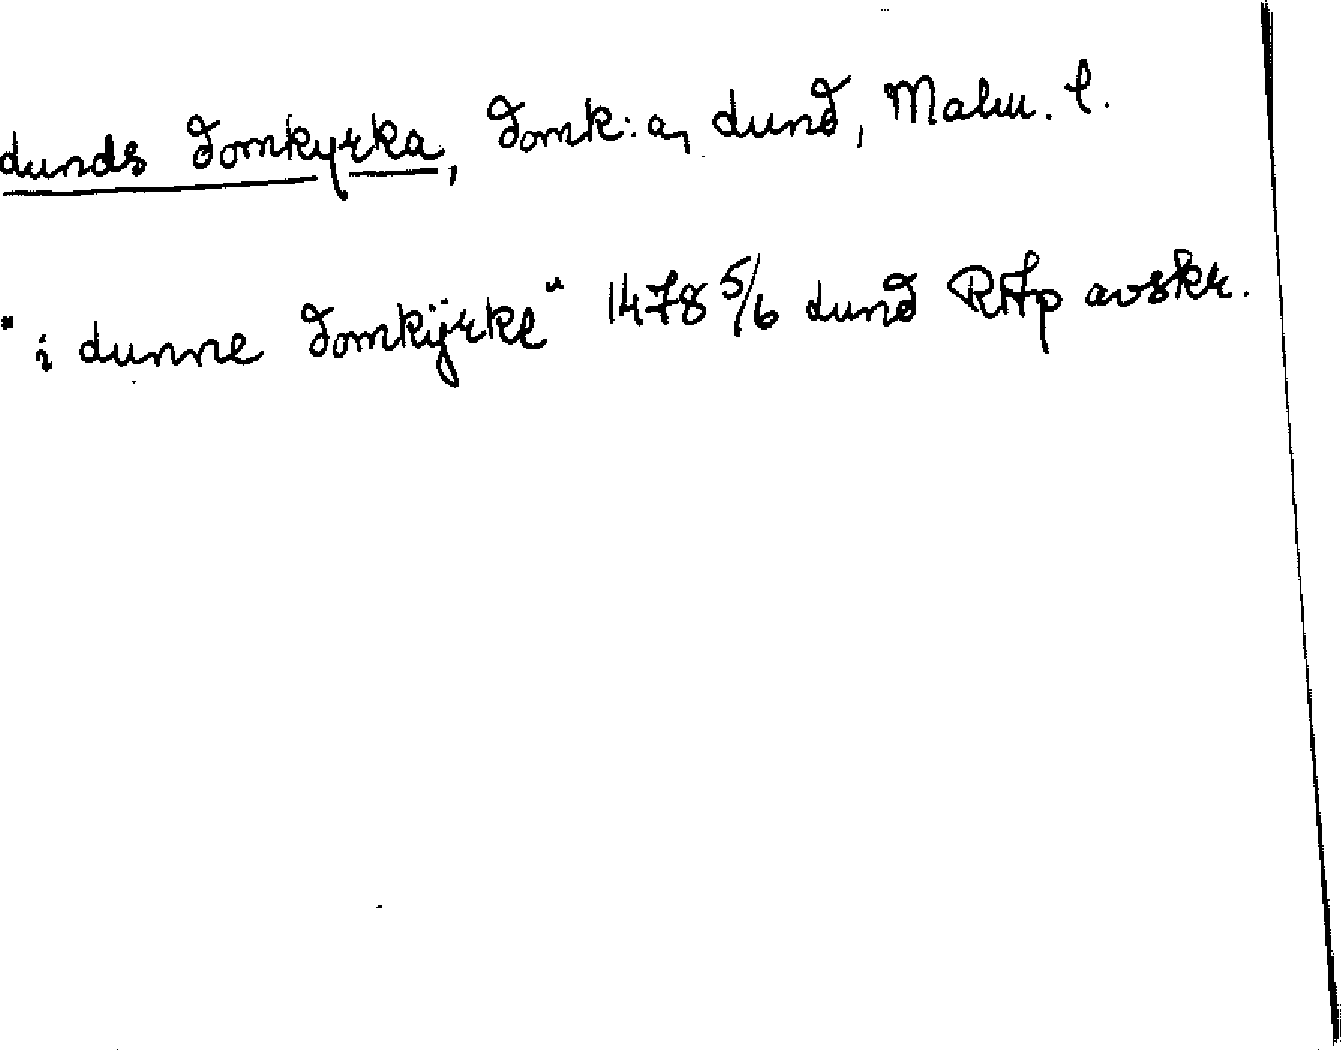 Lunds domkyrka, domk:a, Lund, Malm. l.
"i Lunne domkÿrke" 1478 5/6 Lund RAp avskr.